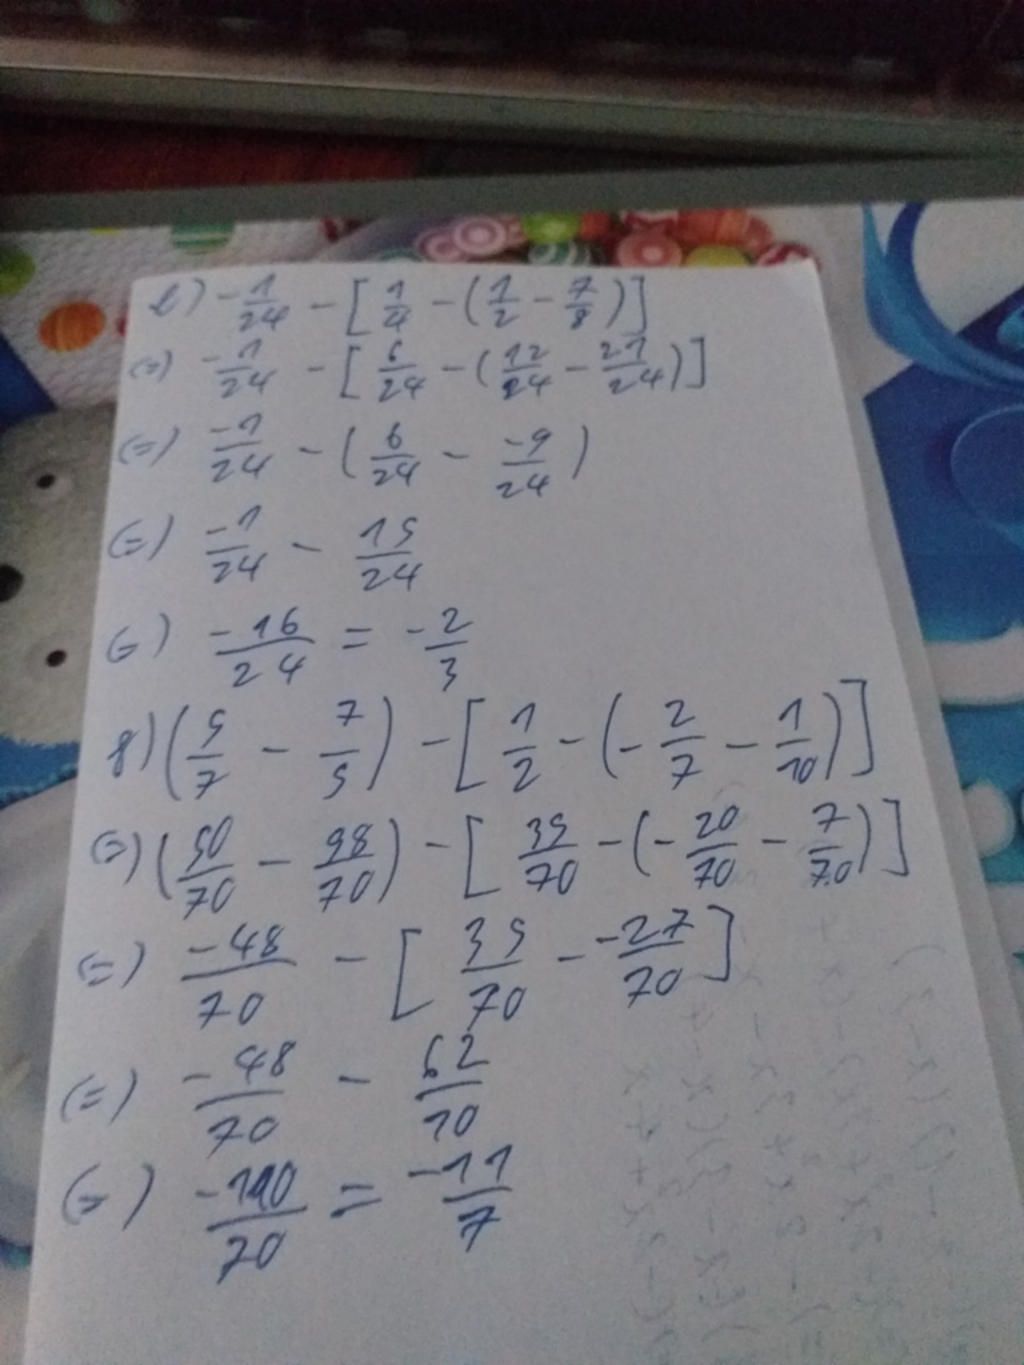 e) -1/24 - [1/4 - (1/2 - 7/8)]
(=) -1/24 - [6/24 - (12/24 - 21/24)]
(=) -1/24 - (6/24 - -9/24)
(=) -1/24 - 15/24
(=) -16/24 = -2/3
f) (5/7 - 7/5) - [1/2 - (-2/7 - 1/10)]
(=) (50/70 - 98/70) - [35/70 - (-20/70 - 7/70)]
(=) -48/70 - [35/70 - -27/70]
(=) -48/70 - 62/70
(=) -110/70 = -11/7